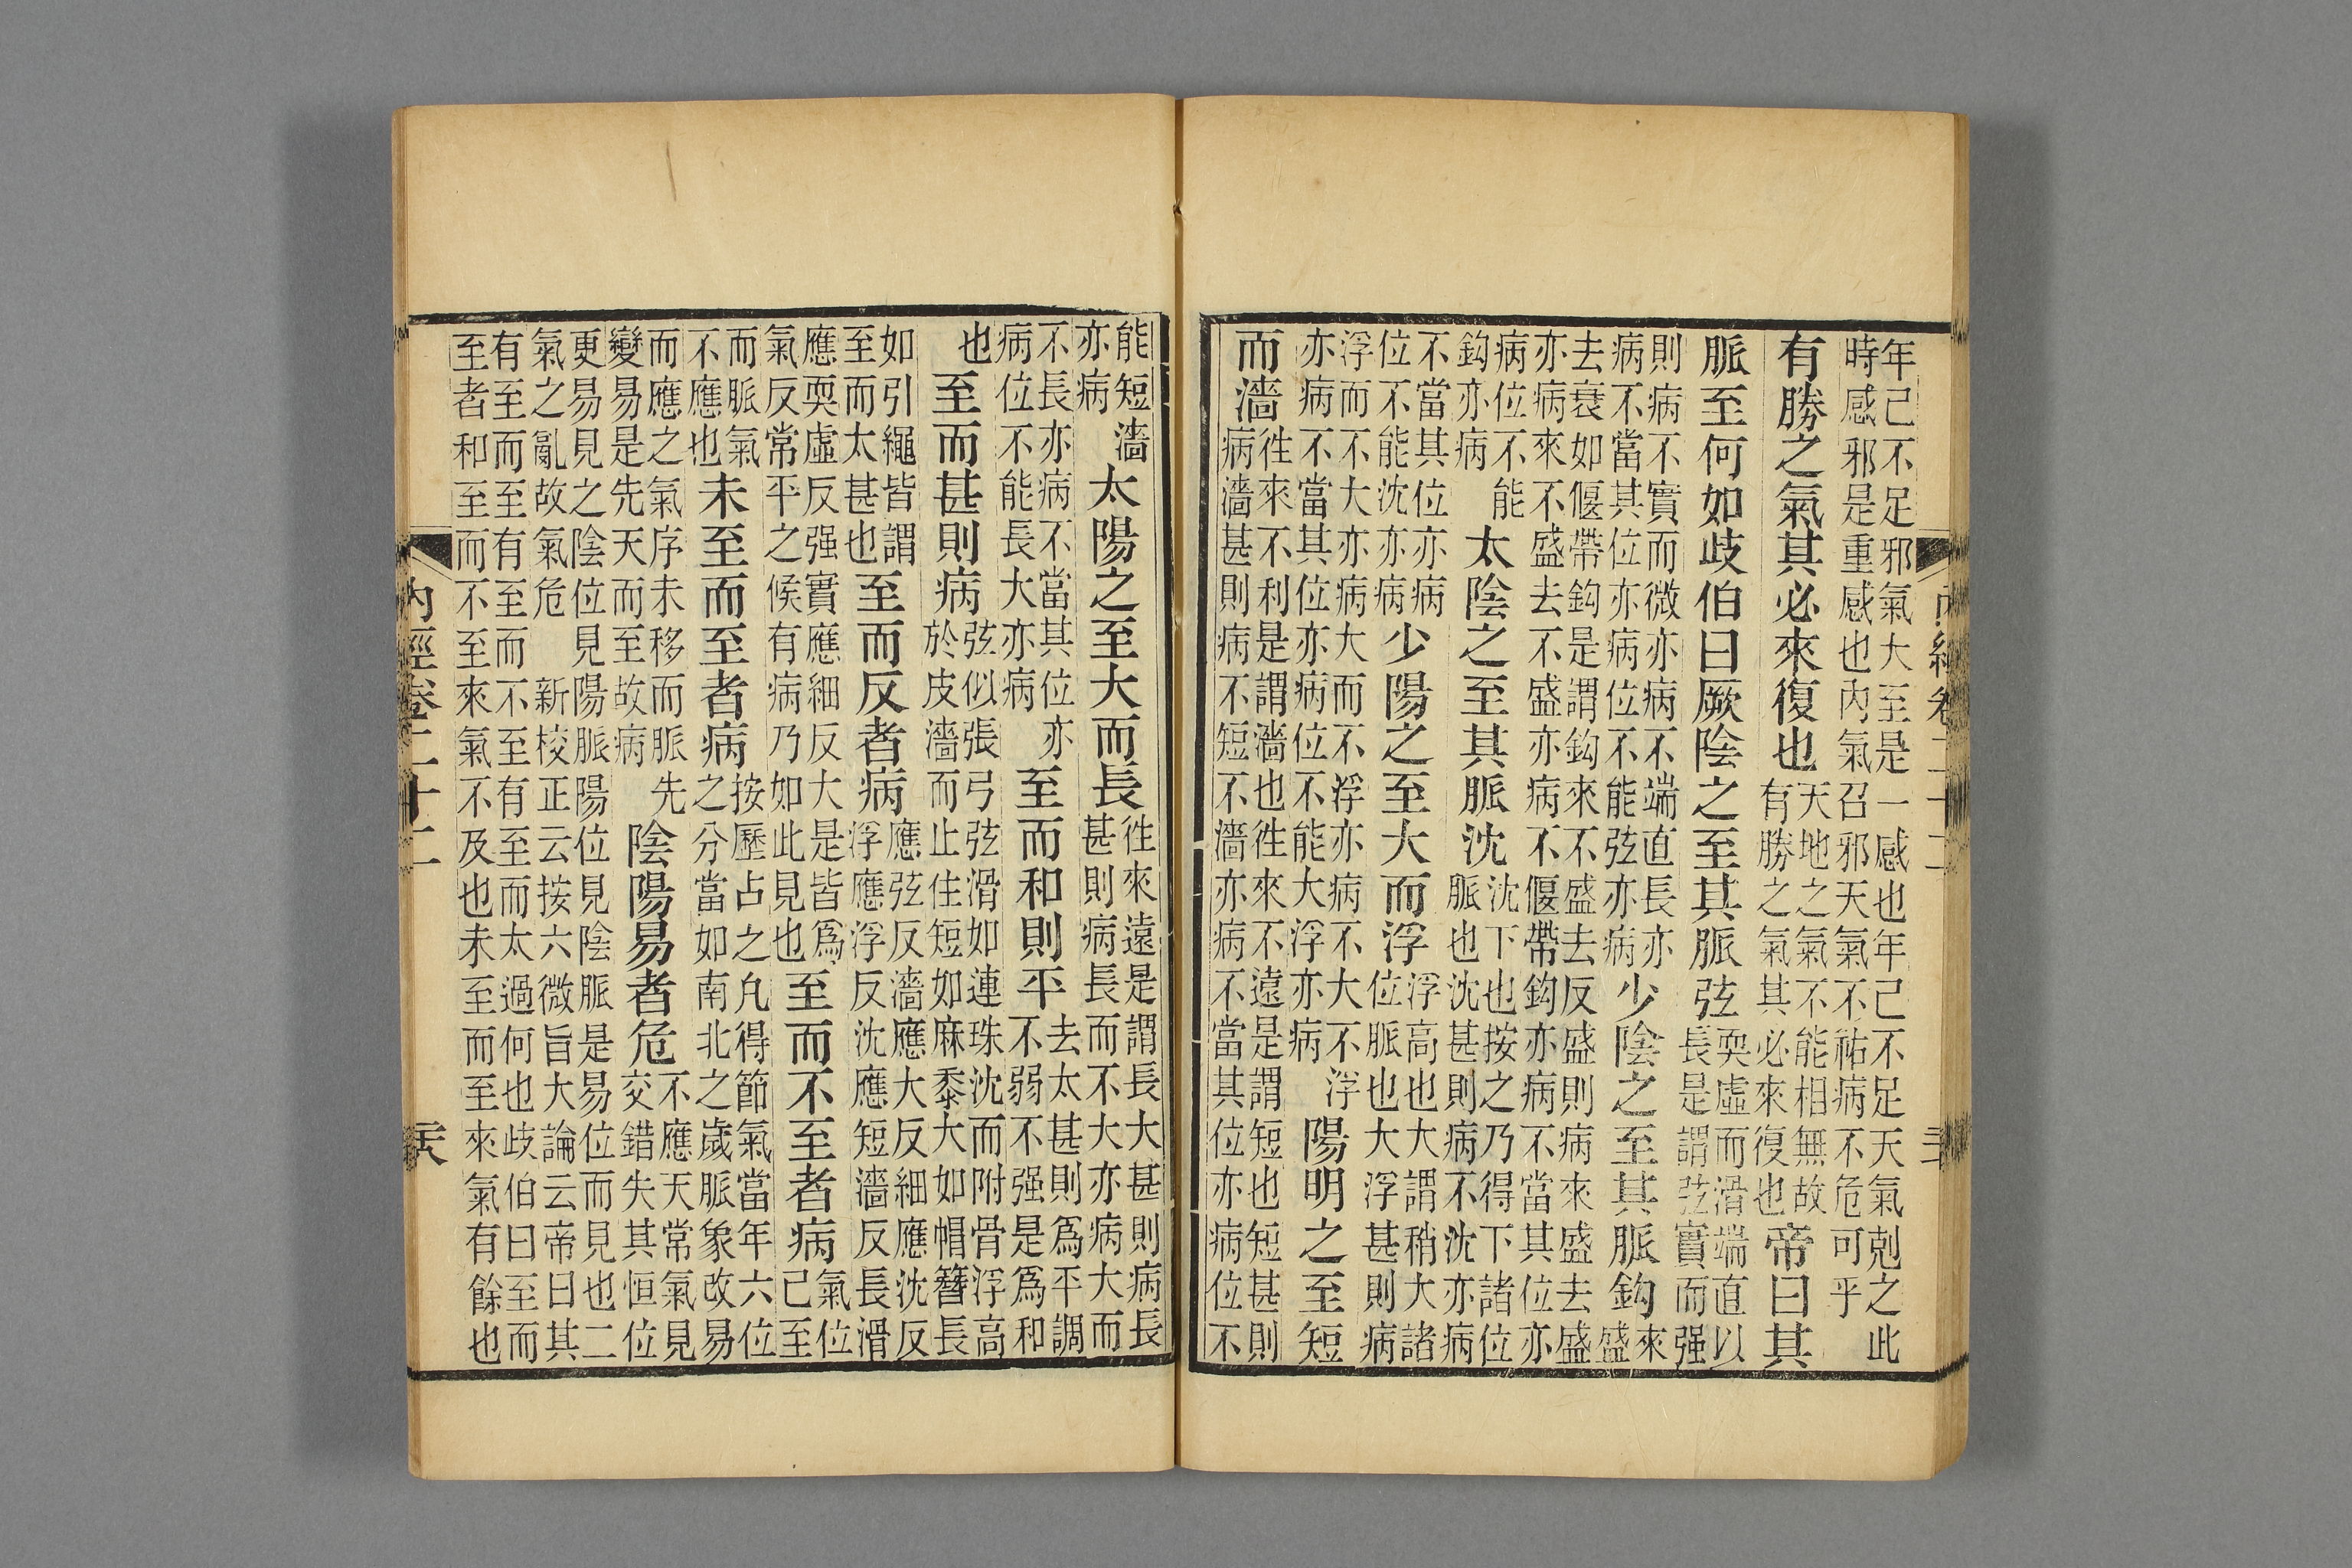 年己不足邪氣大至是一感也年己不足天氣剋之此
時感邪是重感也內氣召邪天氣不祐病不危可乎
有勝之氣其必來復也天地之氣不能相無故有勝之氣其必來復也帝曰其
脈至何如歧伯曰厥陰之至其脈弦耎虛而滑端直以長是謂弦實而强
則病不實而微亦病不端直長亦病不當其位亦病位不能弦亦病少陰之至其脈鈎來盛
去衰如偃帶鈎是謂鈎來不盛去反盛則病來盛去盛
亦病來不盛去不盛亦病不偃帶鈎亦病不當其位亦
病位不能鈎亦病太陰之至其脈沈沈下也按之乃得下諸位脈也沈甚則病不沈亦病
不當其位亦病位不能沈亦病少陽之至大而浮浮高也大謂稍大諸位脈也大浮甚則病
浮而不大亦病大而不浮亦病不大不浮亦病不當其位亦病位不能大浮亦病陽明之至短
而濇往來不利是謂濇也往來不遠是謂短也短甚則病濇甚則病不短不濇亦病不當其位亦病位不
能短濇亦病太陽之至大而長往來遠是謂長大甚則病長甚則病長而不大亦病大而
不長亦病不當其位亦病位不能長大亦病至而和則平去太甚則爲平調不弱不强是爲和
也至而甚則病弦似張弓弦滑如連珠沈而附骨浮高於皮濇而止住短如麻黍大如帽簪長
如引繩皆謂至而太甚也至而反者病應弦反濇應大反細應沈反浮應浮反沈應短濇反長滑
應耎虛反强實應細反大是皆爲氣反常平之候有病乃如此見也至而不至者病氣位己至
而脈氣不應也未至而至者病按歷占之凡得節氣當年六位之分當如南北之歲脈象改易
而應之氣序未移而脈先變易是先天而至故病陰陽易者危不應天常氣見交錯失其恒位
更易見之陰位見陽脈陽位見陰脈是易位而見也二
氣之亂故氣危 新校正云按六微旨大論云帝曰其
有至而至有至而不至有至而太過何也歧伯曰至而
至者和至而不至來氣不及也未至而至來氣有餘也
內經卷二十二